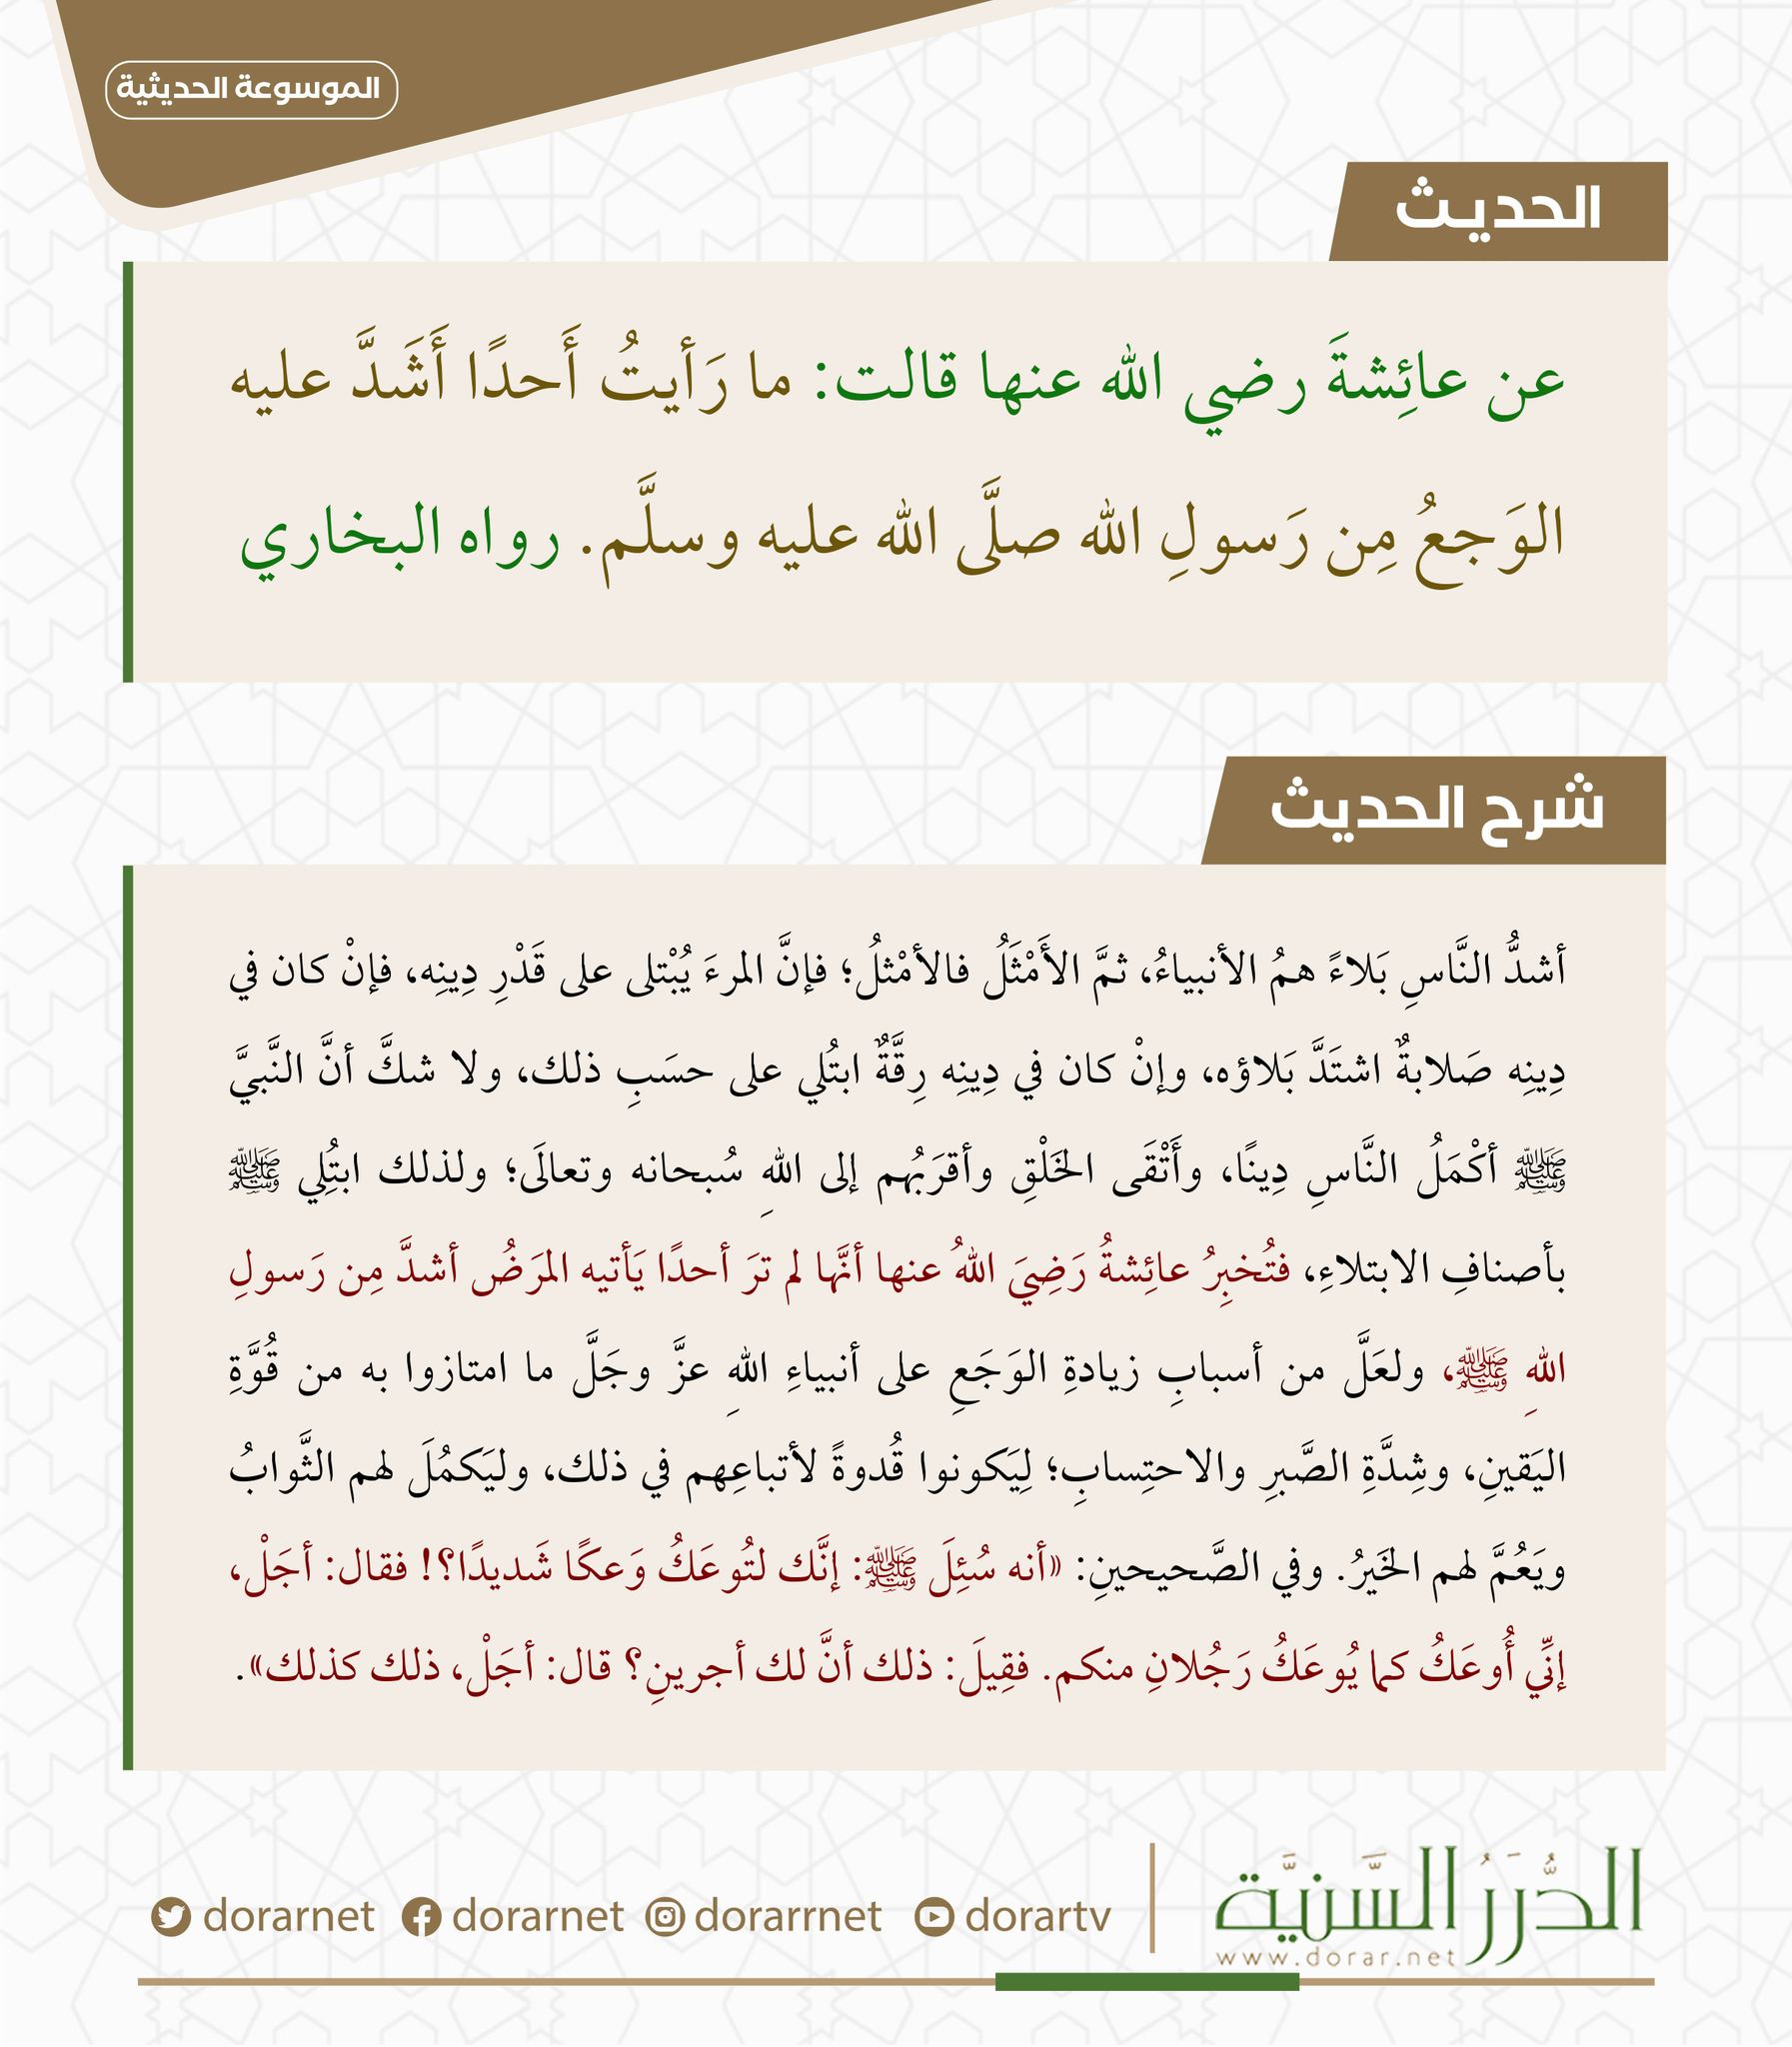 الموسوعة الحديثية
الحديث
عن عائِشةَ رضي الله عنها قالت: ما رَأيتُ أَحدًا أَشَدَّ عليه
الوَجعُ مِن رَسولِ الله صلَّى الله عليه وسلَّم. رواه البخاري
شرح الحديث
أشدُّ النَّاسِ بَلاءً همُ الأنبياءُ، ثمَّ الأَمْثَلُ فالأمْثلُ؛ فإنَّ المرءَ يُبْتلى على قَدْرِ دِينِه، فإنْ كان في
دِينِه صَلابةٌ اشتَدَّ بَلاؤه، وإنْ كان في دِينِه رِقَّةٌ ابتُلي على حسَبِ ذلك، ولا شكَّ أنَّ النَّبيَّ
ﷺ أكْمَلُ النَّاسِ دِينًا، وأَتْقَى الخَلْقِ وأقرَبُهم إلى اللهِ سُبحانه وتعالَى؛ ولذلك ابتُلِي ﷺ
بأصنافِ الابتلاءِ، فتُخبِرُ عائِشةُ رَضِيَ اللهُ عنها أنَّها لم ترَ أحدًا يَأتيه المرَضُ أشدَّ مِن رَسولِ
اللهِ ﷺ، ولعَلَّ من أسبابِ زيادةِ الوَجَعِ على أنبياءِ اللهِ عزَّ وجَلَّ ما امتازوا به من قُوَّةِ
اليَقينِ، وشِدَّةِ الصَّبرِ والاحتِسابِ؛ لِيَكونوا قُدوةً لأتباعِهم في ذلك، وليَكمُلَ لهم الثَّوابُ
ويَعُمَّ لهم الخَيرُ. وفي الصَّحيحينِ: «أنه سُئِلَ ﷺ: إنَّك لتُوعَكُ وَعكًا شَديدًا؟! فقال: أجَلْ،
إنِّي أُوعَكُ كما يُوعَكُ رَجُلانِ منكم. فقِيلَ: ذلك أنَّ لك أجرينِ؟ قال: أجَلْ، ذلك كذلك».
dorarnet dorarnet dorarrnet dorartv
الدُّرَرُ السَّنيَّة
www.dorar.net